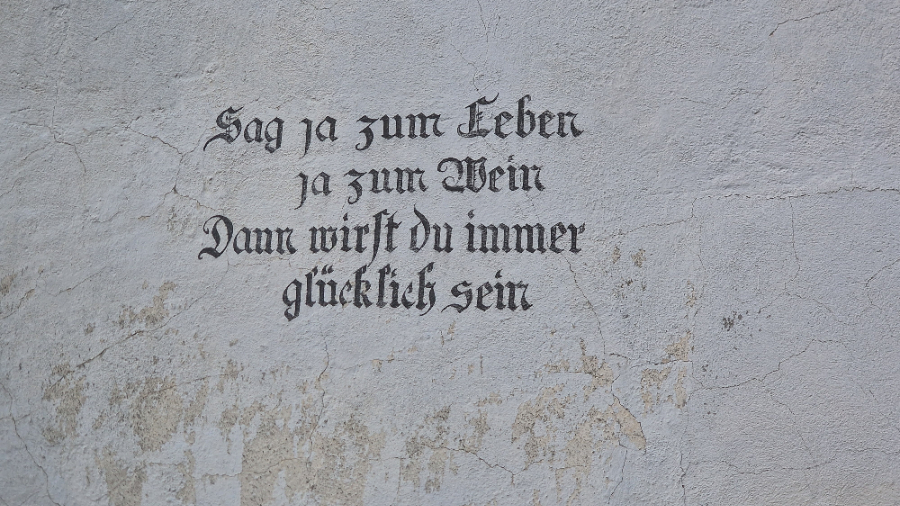 Sag ja zum Leben
ja zum Wein
Dann wirst du immer
glücklich sein